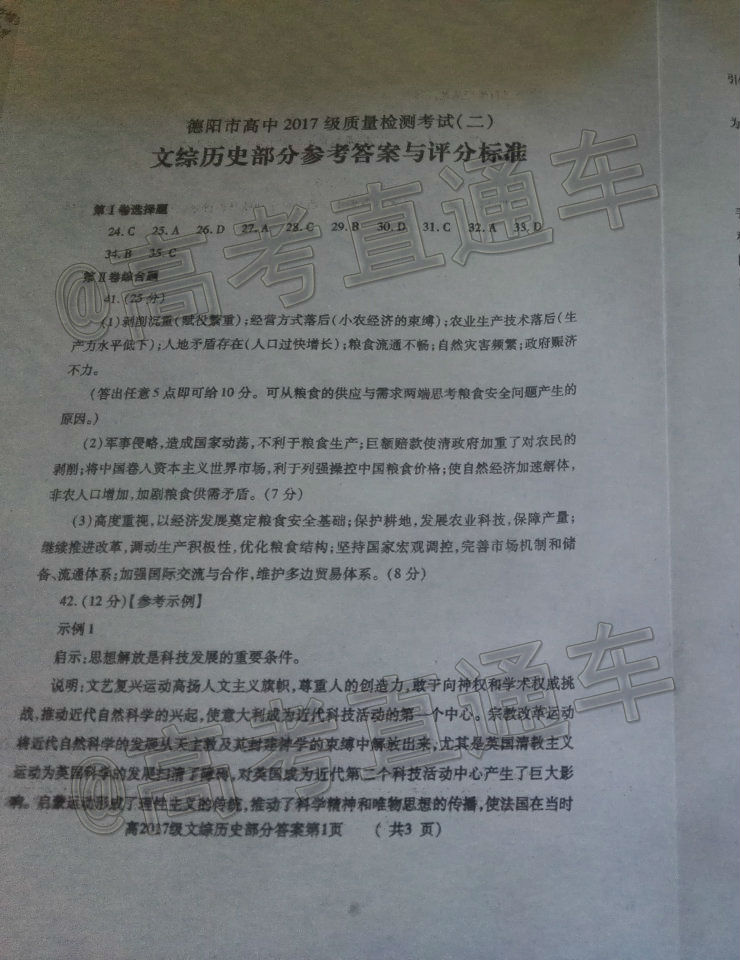 德阳市高中2017级质量检测考试(二)
文综历史部分参考答案与评分标准
第Ⅰ卷选择题
24.C 25.A 26.D 27.A 28.C 29.B 30.D 31.C 32.A 33.D
34.B 35.C
第Ⅱ卷综合题
41.(25分)
(1)剥削沉重(赋役繁重);经营方式落后(小农经济的束缚);农业生产技术落后(生
产力水平低下);人地矛盾存在(人口过快增长);粮食流通不畅;自然灾害频繁;政府赈济
不力。
(答出任意5点即可给10分。可从粮食的供应与需求两端思考粮食安全问题产生的
原因。)
(2)军事侵略,造成国家动荡,不利于粮食生产;巨额赔款使清政府加重了对农民的
剥削;将中国卷入资本主义世界市场,利于列强操控中国粮食价格;使自然经济加速解体,
非农人口增加,加剧粮食供需矛盾。(7分)
(3)高度重视,以经济发展奠定粮食安全基础;保护耕地,发展农业科技,保障产量;
继续推进改革,调动生产积极性,优化粮食结构;坚持国家宏观调控,完善市场机制和储
备、流通体系;加强国际交流与合作,维护多边贸易体系。(8分)
42.(12分)【参考示例】
示例1
启示:思想解放是科技发展的重要条件。
说明:文艺复兴运动高扬人文主义旗帜,尊重人的创造力,敢于向神权和学术权威挑
战,推动近代自然科学的兴起,使意大利成为近代科技活动的第一个中心。宗教改革运动
将近代自然科学的发展从天主教及其封建神学的束缚中解放出来,尤其是英国清教主义
运动为英国科学的发展扫清了障碍,对英国成为近代第二个科技活动中心产生了巨大影
响。启蒙运动形成了理性主义的传统,推动了科学精神和唯物思想的传播,使法国在当时
高2017级文综历史部分答案第1页 (共3页)
@高考直通车
@高考直通车
引
为